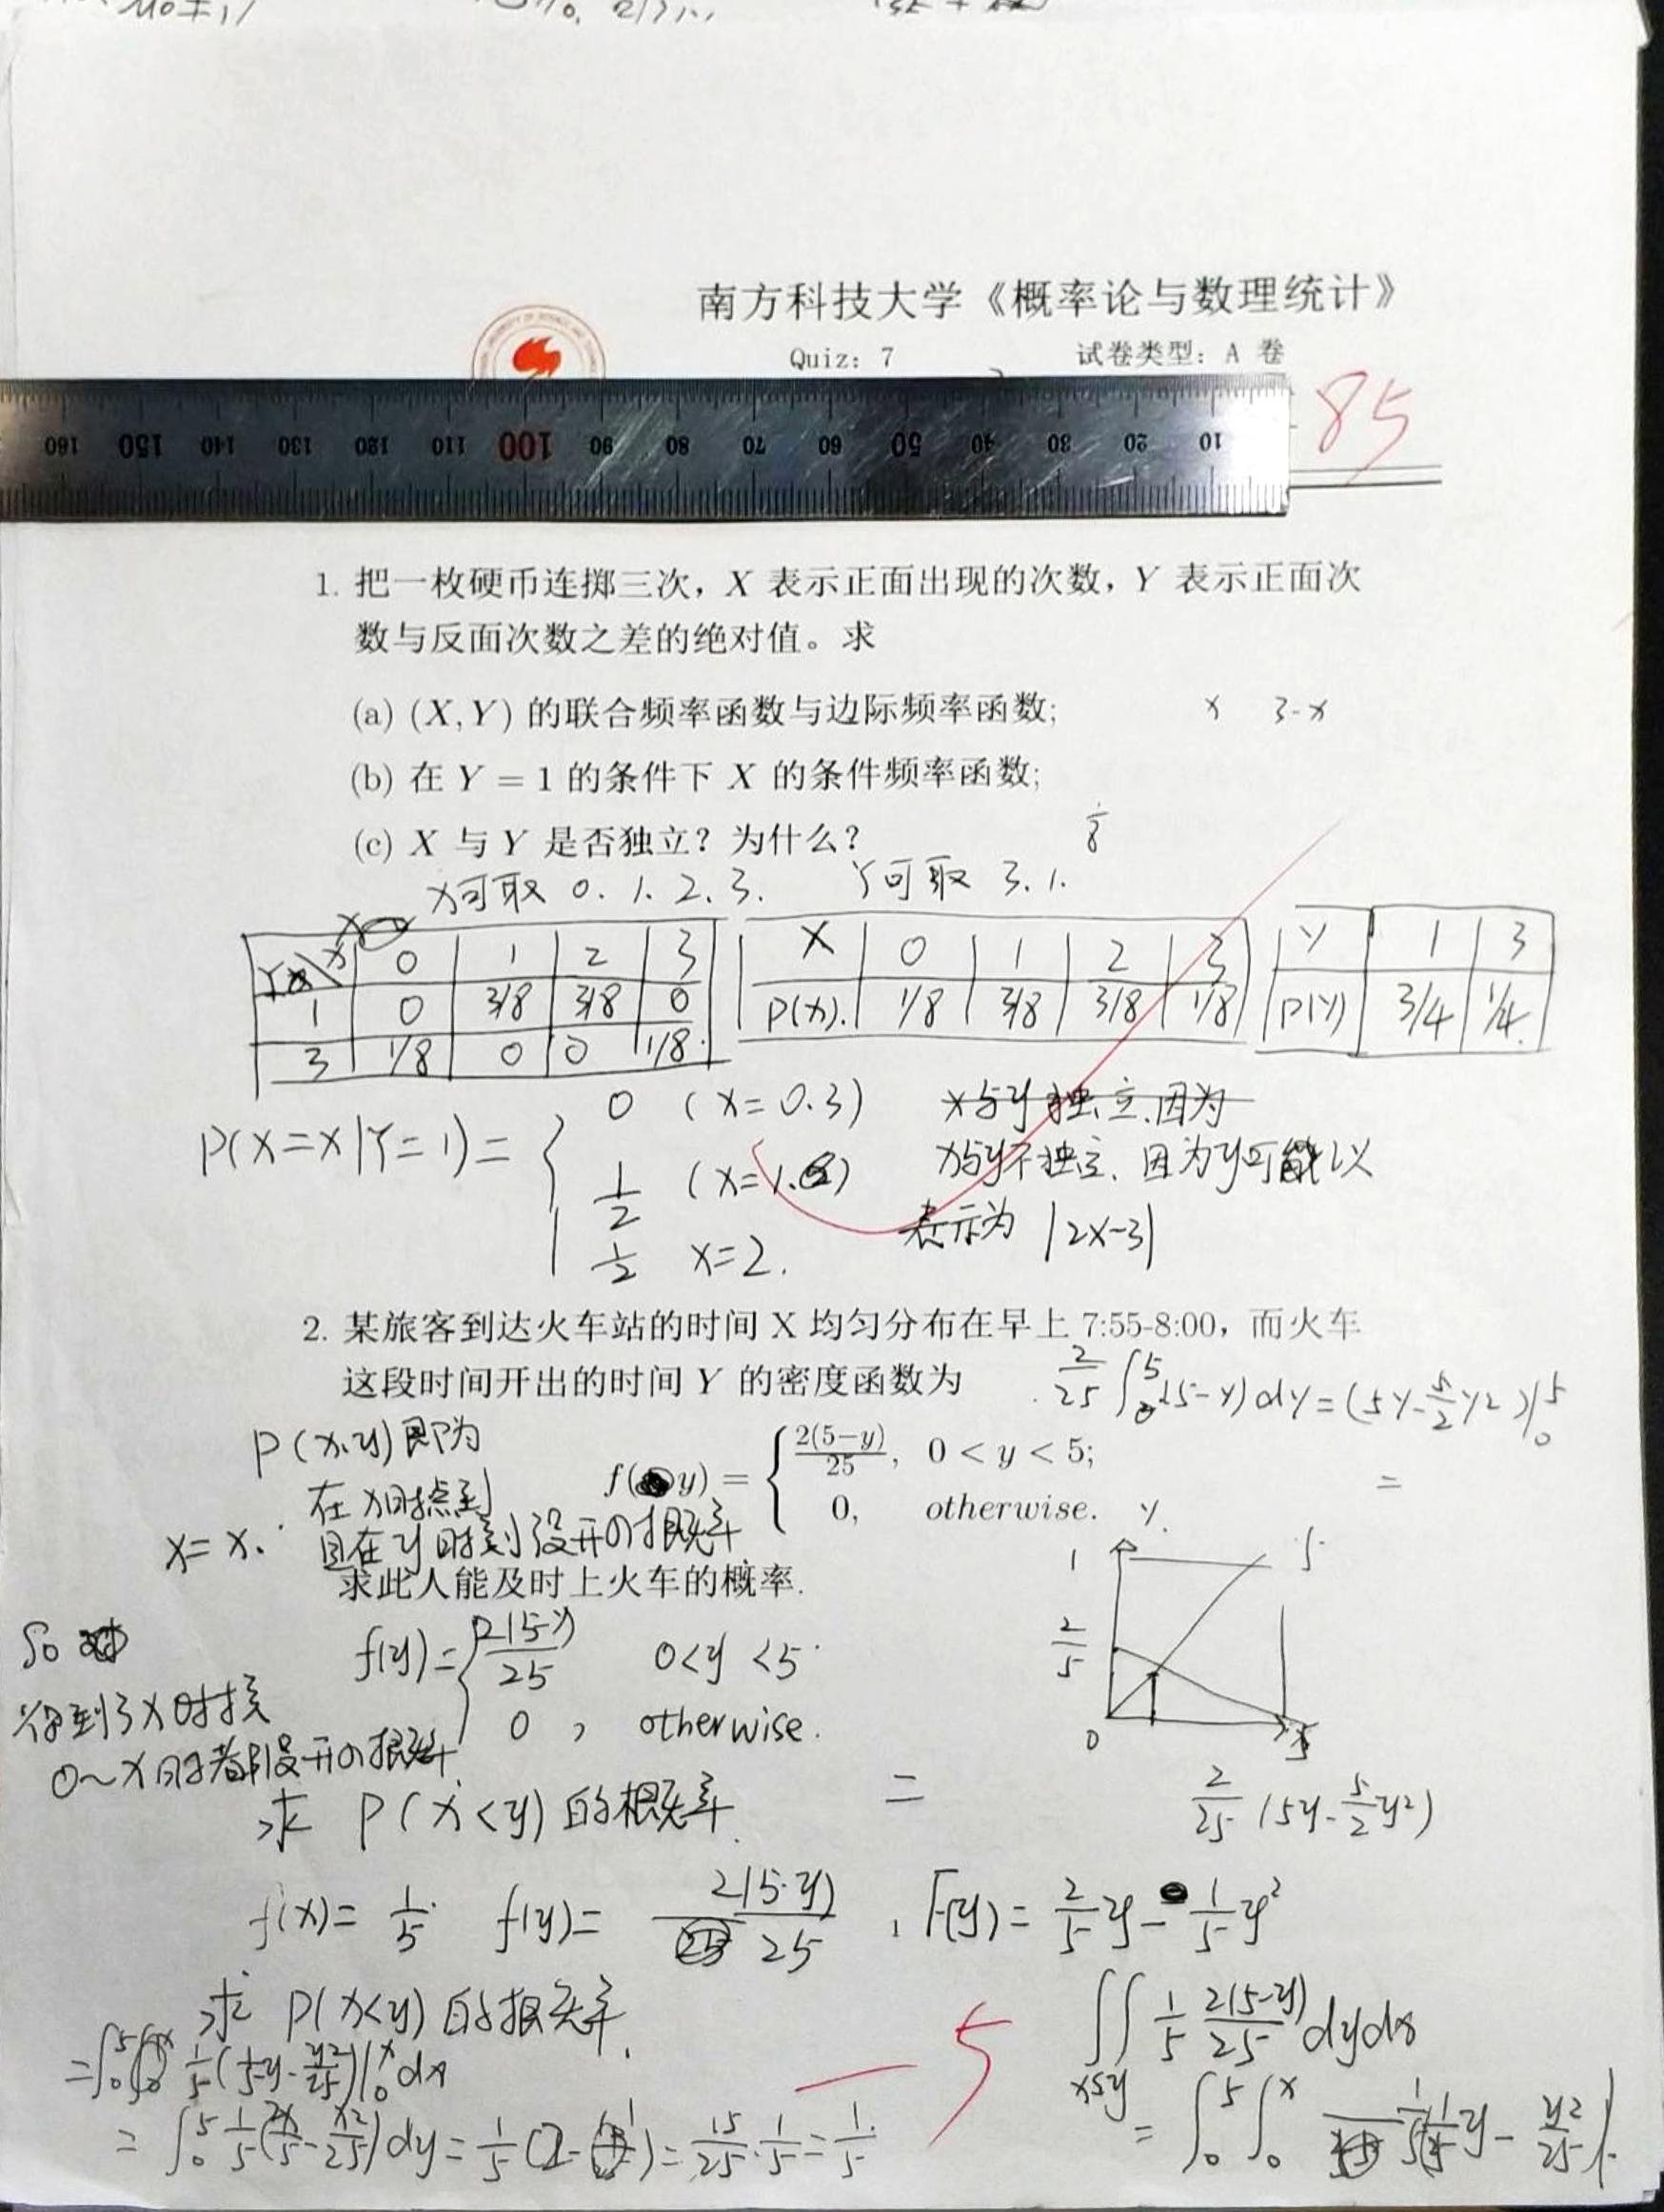 南方科技大学《概率论与数理统计》
Quiz: 7 试卷类型: A 卷
160 150 140 130 120 110 100 90 80 70 60 50 40 30 20 10
85
1. 把一枚硬币连掷三次, X 表示正面出现的次数, Y 表示正面次
数与反面次数之差的绝对值。求
(a) (X,Y) 的联合频率函数与边际频率函数;
x 3-x
(b) 在 Y = 1 的条件下 X 的条件频率函数;
(c) X 与 Y 是否独立? 为什么?
X可取 0. 1. 2. 3. Y可取 3. 1.
0 1 2 3
1 0 3/8 3/8 0
3 1/8 0 0 1/8
X 0 1 2 3
P(x). 1/8 3/8 3/8 1/8
Y 1 3
P(Y) 3/4 1/4.
P(X=x|Y=1)= { 0 (x=0.3)
1/2 (x=1.
1/2 x=2.
x与y独立.因为
x与y不独立. 因为y可能以
表示为 |2x-3|
2. 某旅客到达火车站的时间 X 均匀分布在早上 7:55-8:00, 而火车
这段时间开出的时间 Y 的密度函数为
2/25 ∫ (5-y)dy=(5y-5/2y2)|
P(x.y)即为
在x时点到
且在y时刻没开的概率
x=x.
f( y) = { 2(5−y)/25, 0 < y < 5;
0, otherwise.
=
求此人能及时上火车的概率.
y.
1
5
2/5
0
So
得到了x时接
0~x时都没开的概率
f(y)={ 2(5-y)/25 0<y<5
0, otherwise.
求 P(x<y)的概率.
=
2/25 (5y-5/2y²)
f(x)= 1/5 f(y)= 2(5-y)/25, F(y)= 2/5y - 1/5y²
求 P(x<y)的概率.
∬ 1/5 2(5-y)/25 dydx
x≤y
-5
= ∫ 1/5(2x/5-x2/25)dy= 1/5(2- )= 15/25·1/5=1/5